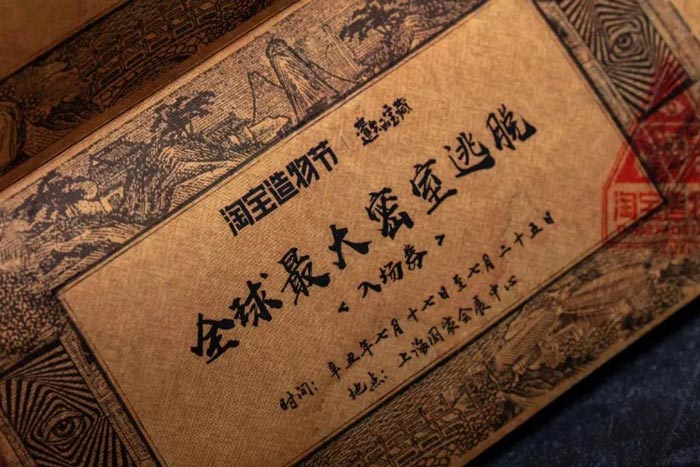 淘宝造物节 | 遗失的宝藏
全球最大密室逃脱
<入场券>
时间：辛丑年七月十七日至七月二十五日
地点：上海国家会展中心
淘宝造